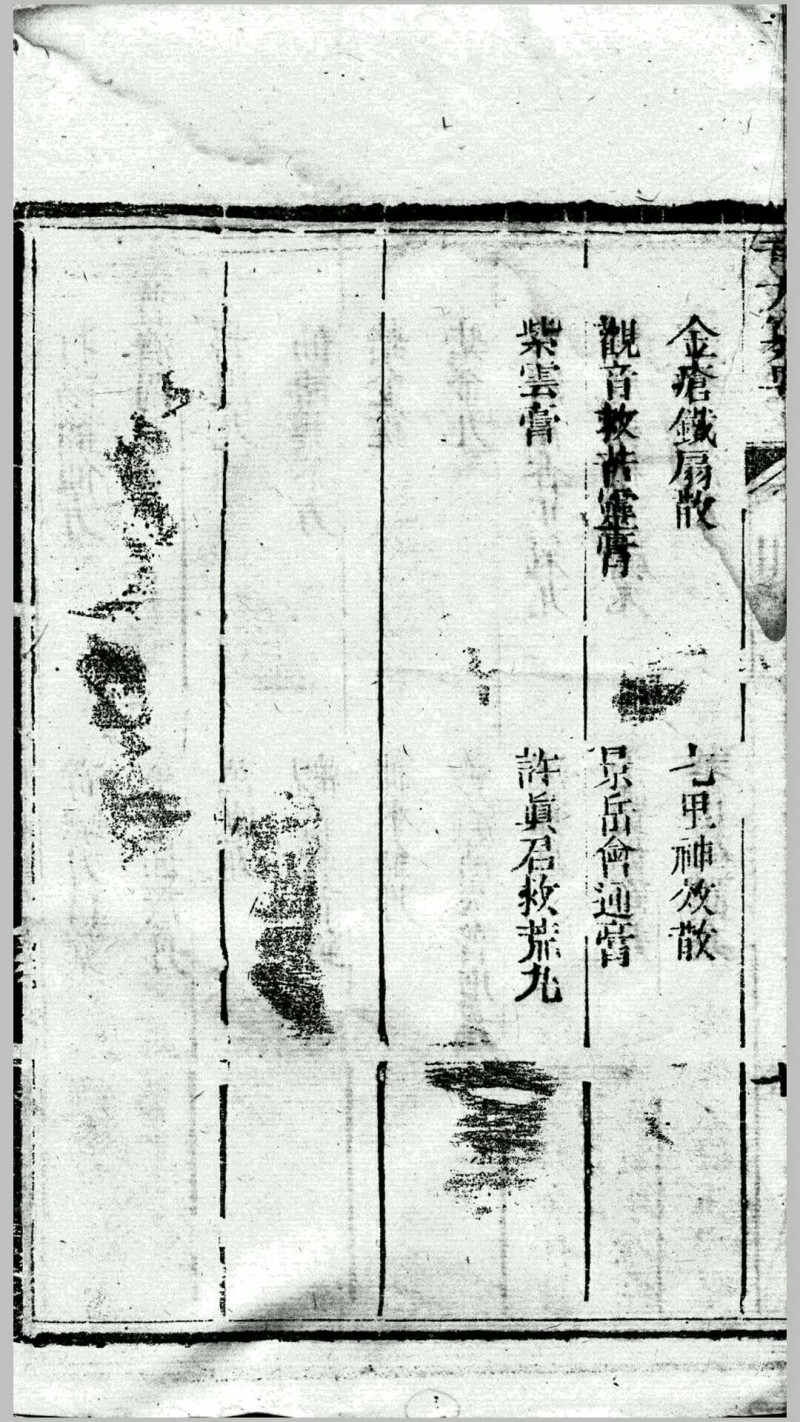 金瘡鐵扇散
七甲神效散
觀音救苦靈膏
景岳會通膏
紫雲膏
許眞君救荒丸
十